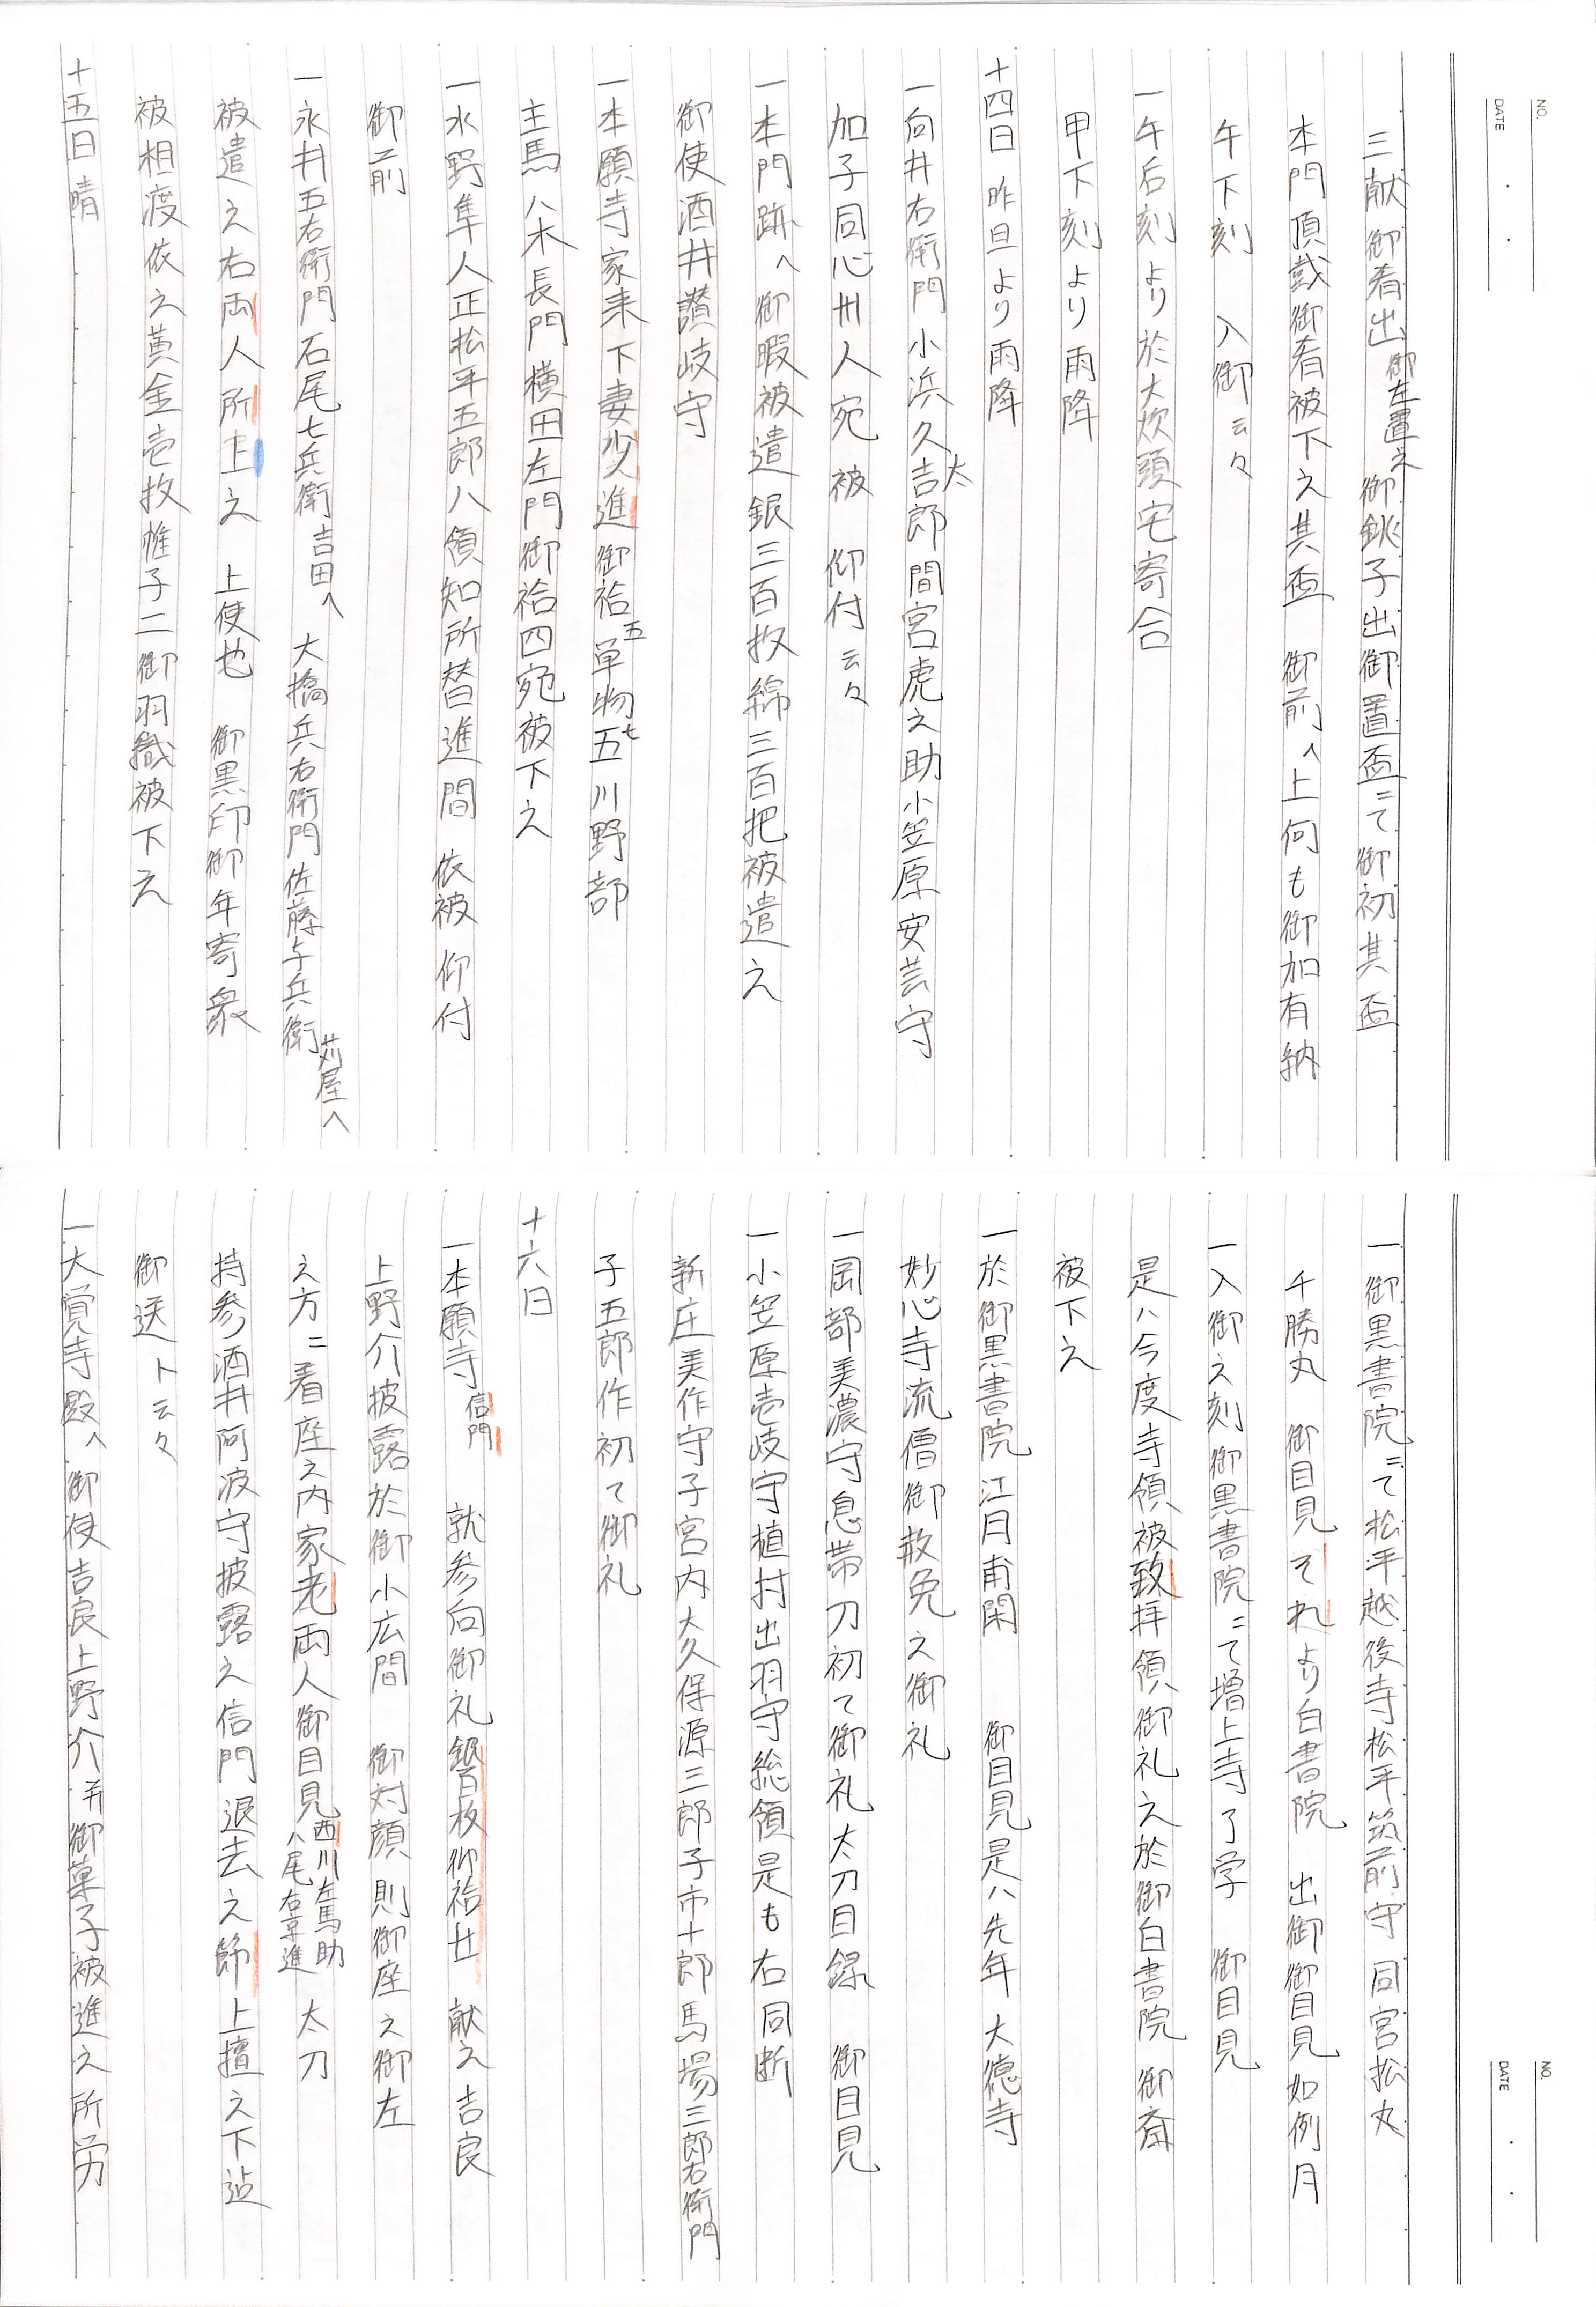 NO.
DATE
三献御肴出御左置之御銚子出御置盃ニて御初其盃
本門頂戴御肴被下之其盃 御前へ上何も御加有納
午下刻 入御云々
一午后刻より於大炊頭宅寄合
甲下刻より雨降
十四日 昨旦より雨降
一向井右衛門小浜久太吉郎間宮虎之助小笠原安芸守
加子同心卅人宛被 仰付云々
一本門跡へ御暇被遣銀三百枚綿三百把被遣之
御使酒井讃岐守
一本願寺家来下妻少進御袷五単物七五川野部
主馬八木長門横田左門御袷四宛被下之
一水野隼人正松平五郎八領知所替進間 依被 仰付
御前
一永井五右衛門石尾七兵衛吉田へ 大橋兵右衛門佐藤与兵衛苅屋へ
被遣之右両人所上之 上使也 御黒印御年寄衆
被相渡依之黄金壱枚帷子二御羽織被下之
十五日晴
NO.
DATE
一御黒書院ニて松平越後寺松平筑前守 同宮松丸
千勝丸 御目見それより白書院 出御御目見如例月
一入御之刻御黒書院ニて増上寺了学 御目見
是ハ今度寺領被致拝領御礼之於御白書院 御斎
被下之
一於御黒書院江月甫閑 御目見是ハ先年大徳寺
妙心寺流僧御赦免之御礼
一岡部美濃守息帯刀初て御礼太刀目録 御目見
一小笠原壱岐守植村出羽守総領是も右同断
新庄美作守子宮内大久保源三郎子市十郎馬場三郎右衛門
子五郎作初て御礼
十六日
一本願寺信門 就参向御礼銀百枚御袷廿 献之吉良
上野介披露於御小広間 御対顔則御座之御左
之方ニ着座之内家老両人御目見西川左馬助八尾右京進 太刀
持参酒井阿波守披露之信門退去之節上檀之下迠
御送ト云々
一大覚寺殿へ御使吉良上野介并御菓子被進之所労